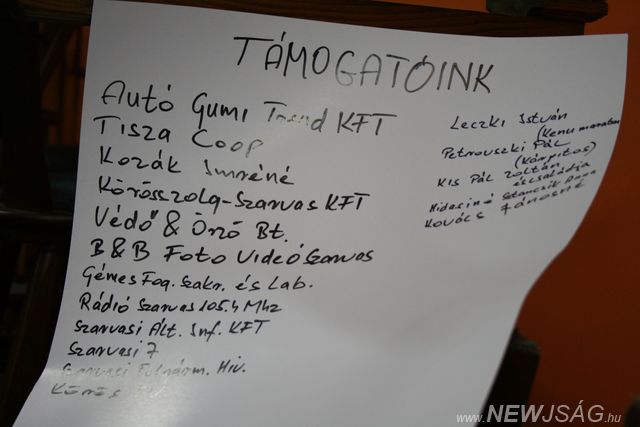 TÁMOGATÓINK
Autó Gumi Trend KFT
Tisza Coop
Kozák Imréné
Körösszolg-Szarvas KFT
Védő & Őrző Bt.
B&B Foto Videó Szarvas
Gémes Fog. szakr. és Lab.
Rádió Szarvas 105.4 Mhz
Szarvasi Ált. Inf. KFT
Szarvasi 7
Szarvasi Hiv.
Leczki István
(Kenu maraton
Petrovszki Pál
(Kárpitos)
Kis Pál Zoltán
és családja
Hidasiné Anna
Kovács Jánosné
www.NEWJSÁG.hu